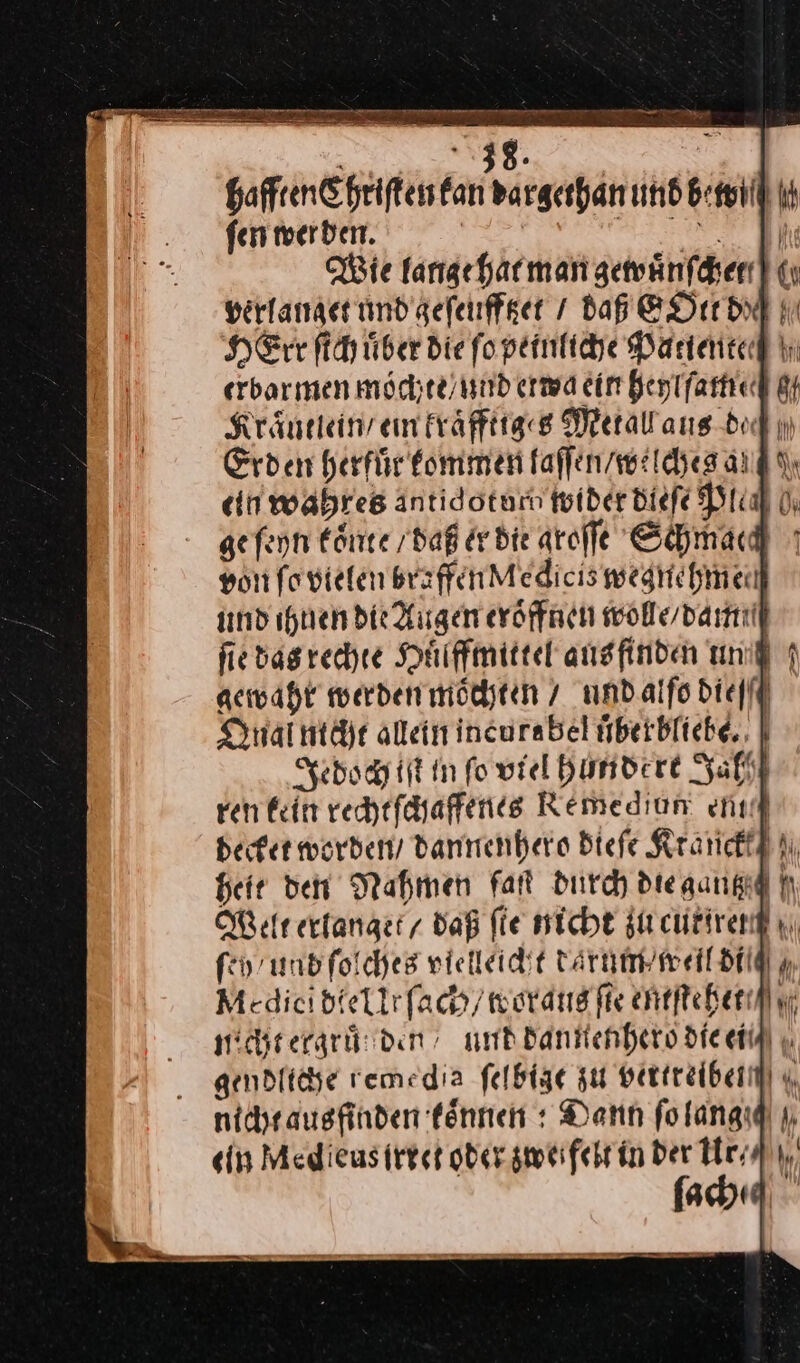 38.
hafften Christen kan dargethan und bewi
sen werden.
Wie lange hat man gewuͤnschet
verlanget und geseufftzet / daß GOtt d
HErr sich uͤber die so peinliche Patiente
erbarmen moͤchte/ und etwa ein heylsame
Kraͤutlein/ ein kraͤfftiges Metall aus de
Erden herfuͤr kommen lassen/ welches a
ein wahres antidotum wider diese Pla
ge seyn koͤnte / daß er die grosse Schmac
von so vielen braffen Medicis wegnehme
und ihnen die Augen eroͤffnen wolle/ dami
sie das rechte Huͤlffmittel ausfinden un
gewahr werden moͤchten / und also dies
Qual nicht allein incurabel uͤberbliebe.
Jedoch ist in so viel hundert Jah
ren kein rechtschaffenes Remedium ent
decket worden/ dannenhero diese Kranck
heit den Nahmen fast durch die gantz
Welt erlanget / daß sie nicht zu curiren
sey/ und solches vielleicht darum/ weil di
Medici die Ursach/ woraus sie entstehet
nicht ergruͤnden / und dannenhero die ei
gendliche remedia selbige zu vertreiben
nicht ausfinden koͤnnen : Dann so lang
ein Medicus irret oder zweifelt in der Ur-
sach